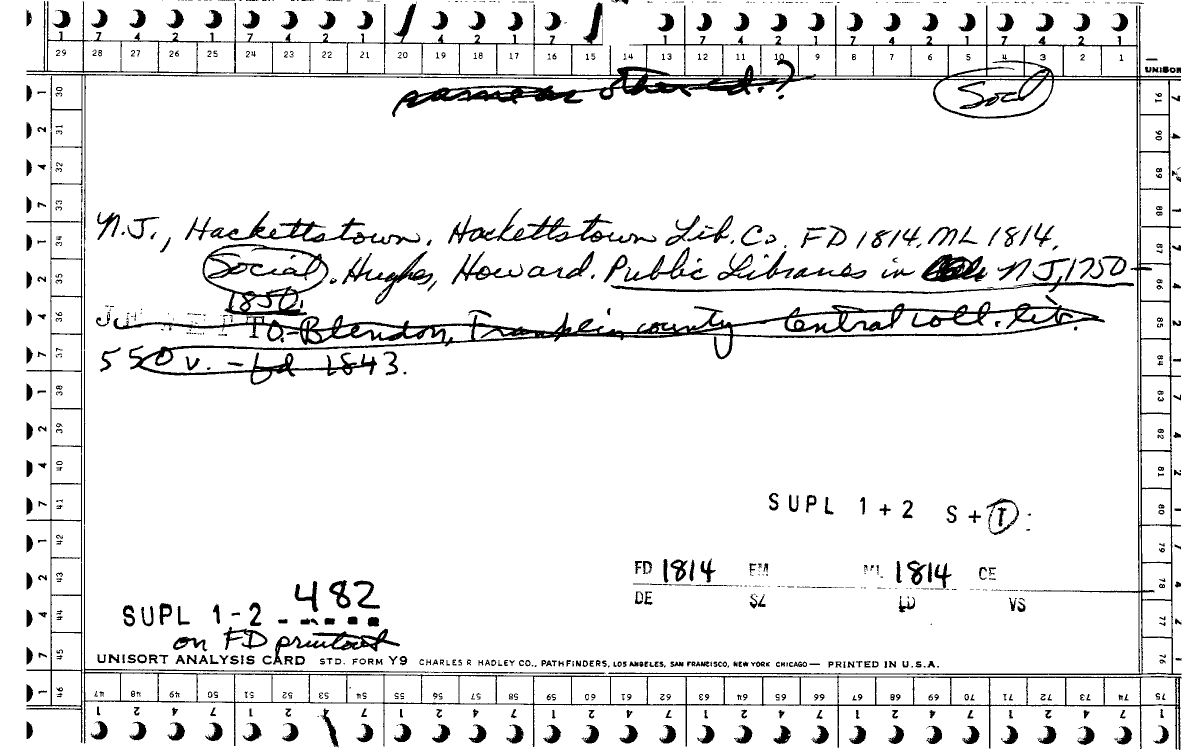 7 4 2 1 7 4 2 1 7 4 2 1 7 1 7 4 2 1 7 4 2 1 7 4 2 1
29 28 27 26 25 24 23 22 21 20 19 18 17 16 15 14 13 12 11 10 9 8 7 6 5 4 3 2 1
UNISOR
same as other ed.?
Social
N.J., Hackettstown. Hackettstown Lib. Co. FD 1814. ML 1814.
Social. Hughes, Howard. Public Libraries in NJ, 1750-
1850.
TO.-Blendon, Franklin county Central coll. lit.
550 v. - fd 1843.
SUPL 1+2 S+T
FD 1814 EM ML 1814 CE
DE SZ LD VS
482
SUPL 1-2
on FD printout
UNISORT ANALYSIS CARD STD. FORM Y9 CHARLES R HADLEY CO., PATHFINDERS, LOS ANGELES, SAN FRANCISCO, NEW YORK CHICAGO — PRINTED IN U.S.A.
30 31 32 33 34 35 36 37 38 39 40 41 42 43 44 45 46
91 90 89 88 87 86 85 84 83 82 81 80 79 78 77 76 75
47 48 49 50 51 52 53 54 55 56 57 58 59 60 61 62 63 64 65 66 67 68 69 70 71 72 73 74
1 2 4 7 1 2 4 7 1 2 4 7 1 2 4 7 1 2 4 7 1 2 4 7 1 2 4 7